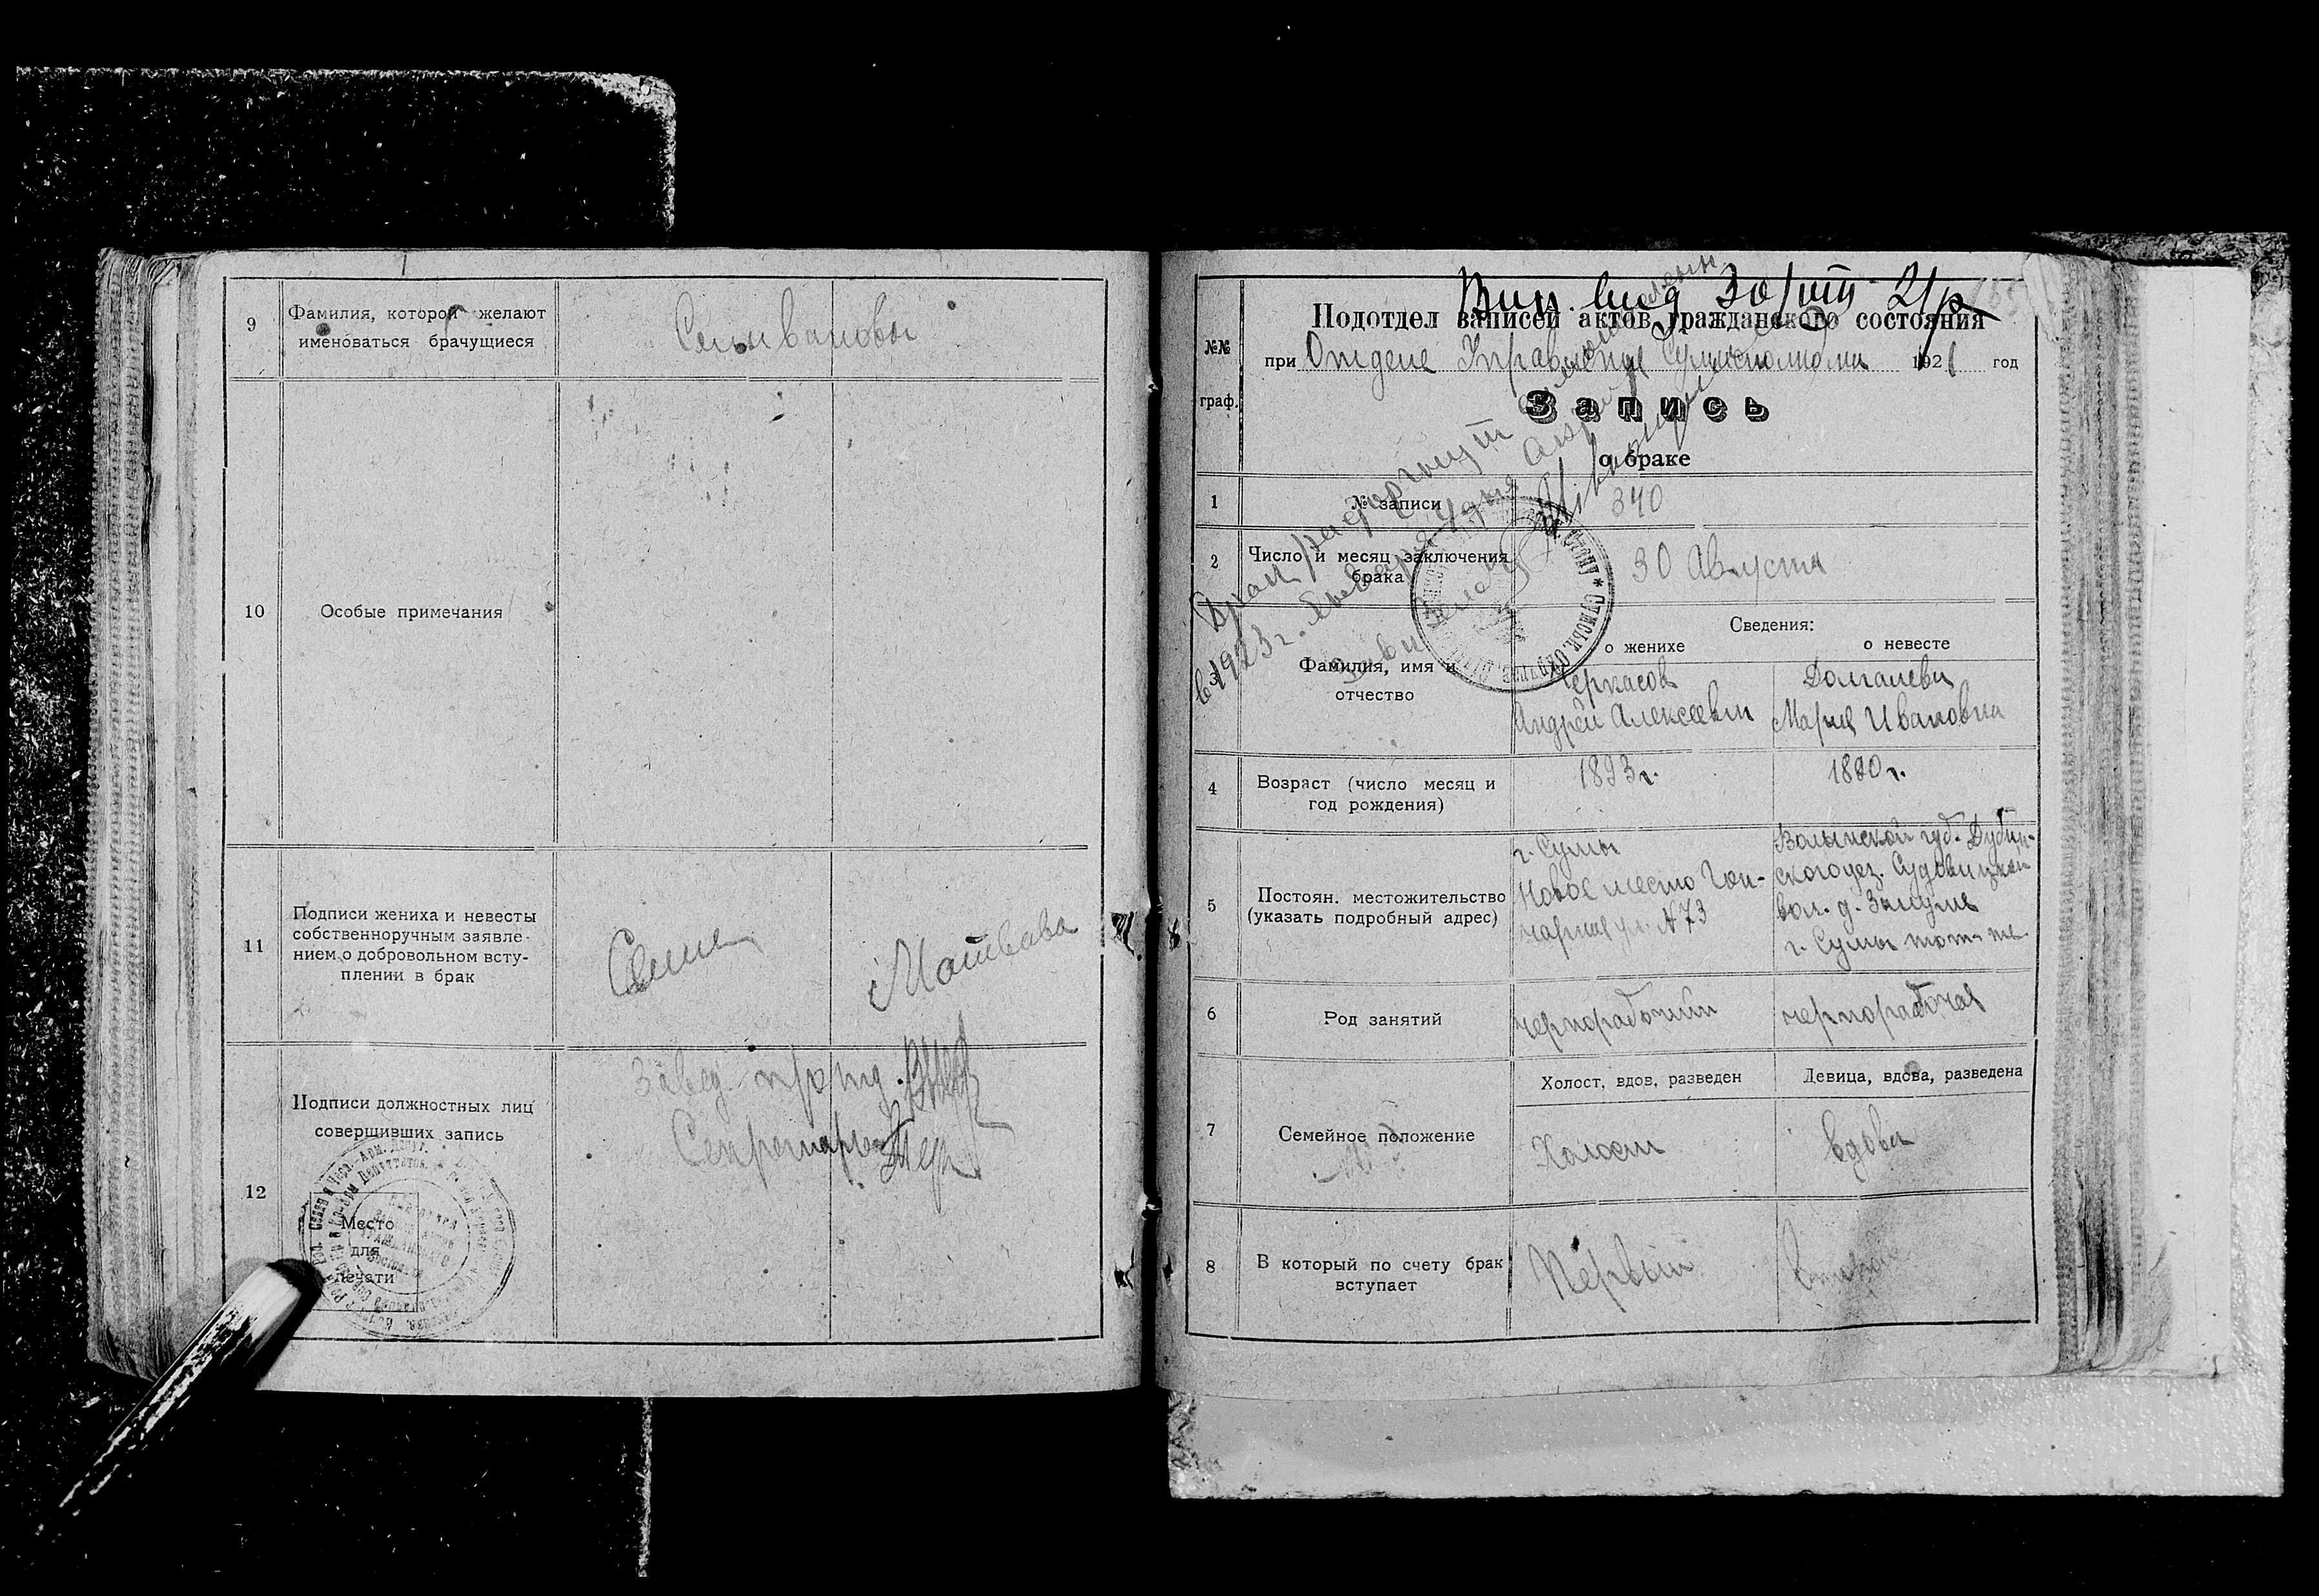 9
Фамилия, которой желают
именоваться брачущиеся
Селивановы
10
Особые примечания
11
Подписи жениха и невесты
собственноручным заявле-
нием о добровольном всту-
плении в брак
Матвева
12
Подписи должностных лиц
совершивших запись
Завед. п/отд.
Секретарь
Место
для
печати
Вид 30/VIII 21 р
Подотдел записей актов гражданского состояния
№№
граф.
при Отделе Управления 1921 год
Запись
о браке
Брак расторгнут
в 1923 г. Января
1
№ записи
340
2
Число и месяц заключения
брака
30 Августа
Сведения:
о женихе
о невесте
Фамилия, имя и
отчество
Черкасов
Андрей Алексеевич
Долгалева
Мария Ивановна
4
Возраст (число месяц и
год рождения)
1893 г.
1890 г.
5
Постоян. местожительство
(указать подробный адрес)
г. Сумы
Новое место Гон-
чарная ул. № 73
Волынской губ. Дубен-
ского уез.
вол. д.
г. Сумы том же
6
Род занятий
чернорабочий
чернорабочая
7
Семейное положение
Холост, вдов, разведен
Девица, вдова, разведена
Холост
вдова
8
В который по счету брак
вступает
Первый
Второй